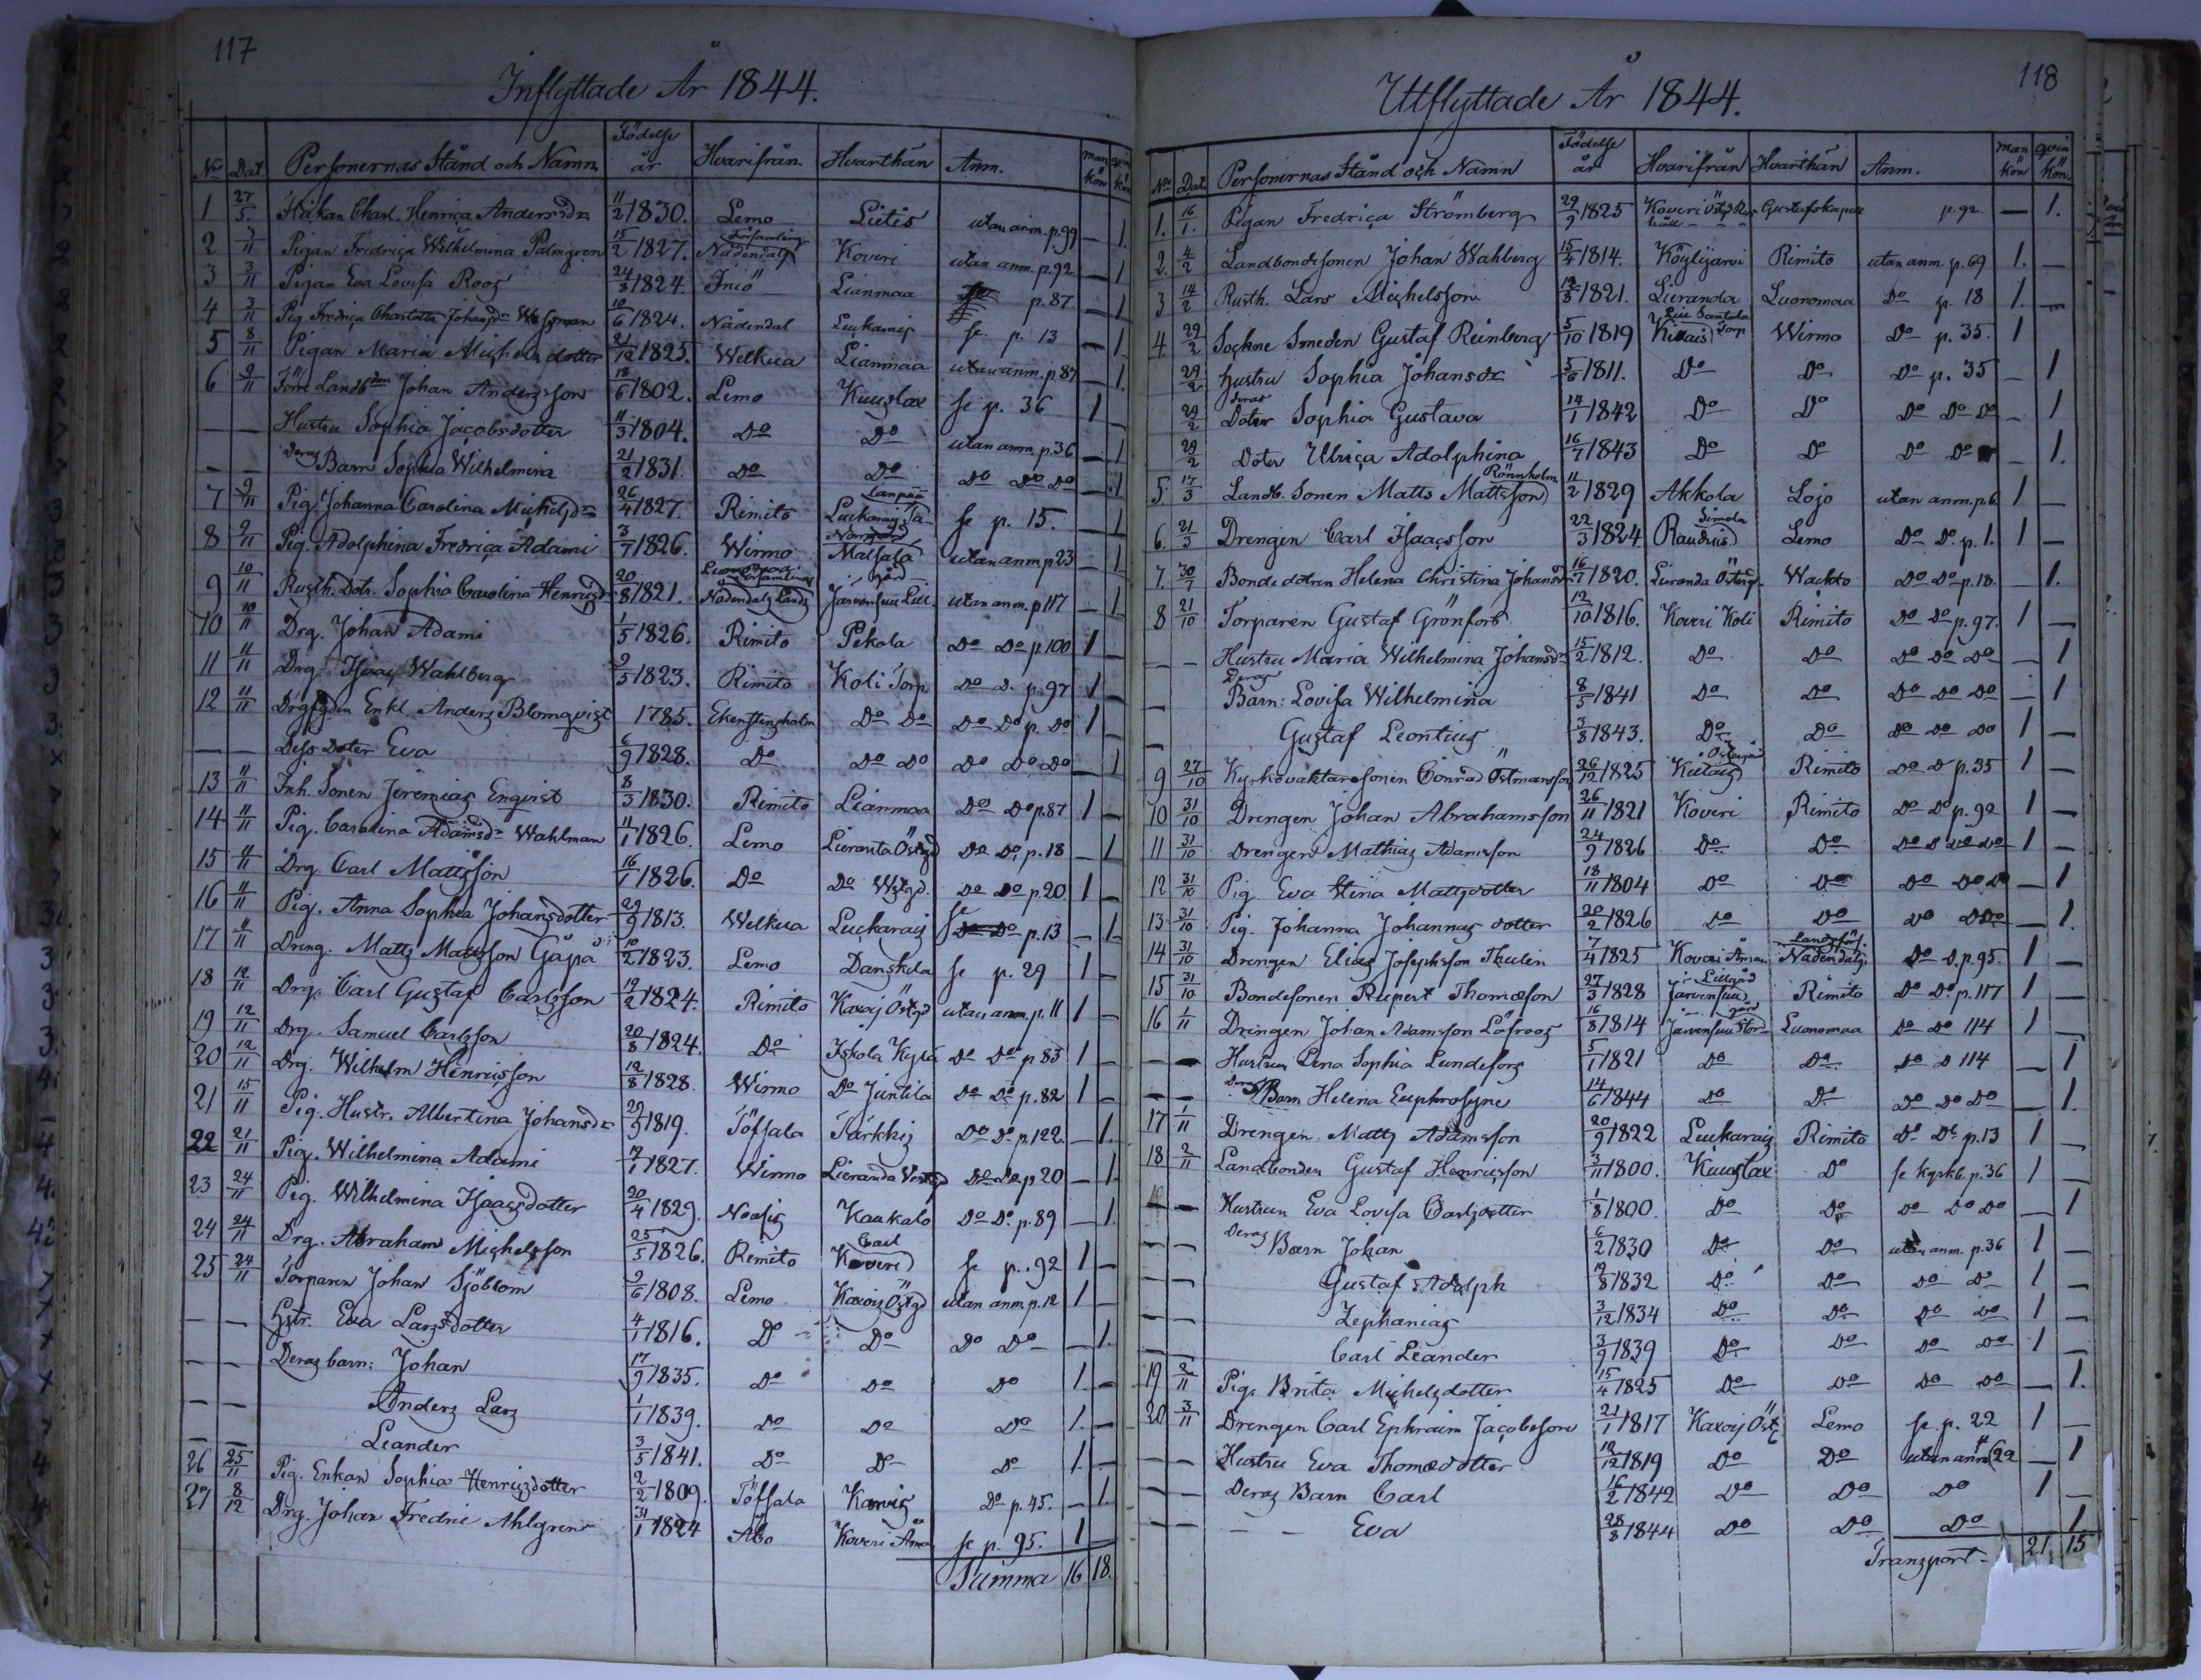 117
Inflyttade År 1844.
No Dat. Personernas Stånd och Namn Födelse år Hvarifrån Hvarthän Anm. man kön qvin kön
1 27/5 Charl. Henrica Andersdr 11/2 1830. Lemo Lietis utan anm. p. 99 — 1.
2 3/11 Pigan Fredrica Wilhelmina Palmgren 15/2 1827. Nådendals Församling Koveri utan anm. p. 92 — 1
3 3/11 Pigan Eva Lovisa Roos 24/3 1824. Iniö Lianmaa p. 87 — 1
4 3/11 Pig. Fredrica Charlotta Johansdr 10/6 1824. Nådendal Luckarais se p. 13 — 1
5 8/11 Pigan Maria Michels dotter 21/12 1825. Welkua Lianmaa utan anm. p. 87 — 1.
6 9/11 Förre Landbden Johan Andersson 18/6 1802. Lemo Kuuslax se p. 36 1
— — Hustru Sophia Jacobsdotter 11/3 1804. Do Do utan anm. p. 36 — 1
— — Deras Barn Sophia Wilhelmina 21/2 1831 Do Do Do Do Do — 1
7 9/11 Pig. Johanna Carolina Michelsdr 26/4 1827. Rimito Luckarais se p. 15. — 1
8 9/11 Pig. Adolphina Fredrica Adami 3/7 1826. Wirmo Matsala utan anm p 23 — 1
9 10/11 Rusth. Dotr. Sophia Carolina Henricsdr 20/8 1821. Nådendals Lands Församling Järvensuu Lill gård utan anm. p 117 — 1
10 10/11 Drg. Johan Adami 1/5 1826. Rimito Pekola Do Do p. 100 1 —
11 11/11 Drg. Isaac Wahlberg 9/5 1823. Rimito Koli Torp Do D. p. 97 1 —
12 11/11 Enkl. Anders Blomqvist 1785. Ekenstensholm Do Do Do Do p. Do 1 —
— — Dess Doter Eva 6/9 1828. Do Do Do Do Do Do — 1
13 11/11 Inh. Sonen Jeremias Enqvist 8/3 1830. Rimito Lianmaa Do Do p. 87 1 —
14 11/11 Pig. Carolina Adamsdr Wahlman 11/1 1826. Lemo Lieranta Östgd Do Do p. 18 — 1
15 11/11 Drg. Carl Mattsson 16/1 1826. Do Do Wstgd. Do Do p. 20. 1 —
16 11/11 Pig. Anna Sophia Johansdotter 29/9 1813. Welkua Luckarais se p. 13 — 1
17 11/11 Dreng. Matts Mattsson Gåpå 10/2 1823. Lemo Danskila se p. 29 1 —
18 12/11 Drg. Carl Gustaf Carlsson 19/2 1824. Rimito Kaxois Östgd utan anm. p. 11 1 —
19 12/11 Drg. Samuel Carlsson 20/8 1824. Do Iskola Kylä Do Do p. 83 1 —
20 12/11 Drg. Wilhelm Henricsson 12/8 1828. Wirmo Do Juntila Do Do p. 82 1 —
21 15/11 Pig. Hustr. Albertina Johansdr 29/9 1819. Töfsala Tärkkis Do Do p. 122. — 1.
22 21/11 Pig. Wilhelmina Adami 19/1 1827. Wirmo Lieranda Do Do p 20 — 1
23 24/11 Pig. Wilhelmina Isaacsdotter 20/4 1829. Nousis Kaakalo Do Do p. 89 — 1.
24 24/11 Drg. Abraham Michelsson 25/5 1826. Rimito Koveri se p. 92 1 —
25 24/11 Torparen Johan Sjöblom 9/6 1808. Lemo Kaxois Östgd utan anm. p. 12 1 —
— — Hstr. Eva Larsdotter 4/1 1816. Do Do Do Do — 1.
— — Deras barn: Johan 17/9 1835. Do Do Do 1. —
— — Anders Lars 1/1 1839. Do Do Do 1. —
— — Leander 3/5 1841. Do Do Do 1. —
26 25/11 Pig. Enkan Sophia Henricsdotter 2/2 1809. Töfsala Karvis Do p. 45. — 1.
27 8/12 Drg. Johan Fredric Ahlgren 31/1 1824 Åbo Koveri se p. 95. 1
Summa 16 18.
118
Uttflyttade År 1844.
No Dat. Personernas Stånd och Namn Födelse år Hvarifrån Hvarthän Anm. man kön qvin kön.
1. 16/1. Pigan Fredrica Strömberg 29/9 1825 Koveri Gustafs kapell p. 92. — 1.
2. 4/2 Landbondesonen Johan Wahlberg 15/4 1814. Köylijärvi Rimito utan anm. p. 69 1. —
3 14/2 Rusth. Lars Michelsson 12/8 1821. Lieranda Luonomaa Do p. 18 1. —
4. 29/2 Sockne Smeden Gustaf Reinberg 5/10 1819 Torp Wirmo Do p. 35. 1
29/2 Hustru Sophia Johansdr 5/6 1811. Do Do Do p. 35 — 1
29/2 deras Doter Sophia Gustava 14/1 1842 Do Do Do Do Do — 1
29/2 Doter Ulrica Adolphina 16/7 1843 Do Do Do Do — 1.
5. 17/3 Landb. Sonen Matts Mattsson Rönnholm 11/2 1829 Akkola Lojo utan anm. p. 6 1 —
6. 21/3 Drengen Carl Isaacsson 22/3 1824. Raudais Simola Lemo Do Do. p. 1. 1 —
7. 30/7 Bonde dotren Helena Christina Johansdr 16/7 1820. Lieranda Österg. Wachto Do Do p. 18. — 1.
8 21/10 Torparen Gustaf Grönfors 12/10 1816. Koveri Koli Rimito Do Do p. 97. 1 —
— — Hustru Maria Wilhelmina Johansdr 15/2 1812. Do Do Do Do Do — 1
— Deras Barn: Lovisa Wilhelmina 8/5 1841 Do Do Do Do Do — 1
— Gustaf Leontius 3/8 1843. Do Do Do Do Do 1 —
9 27/10 Kyrkovaktaresonen Conrad Östmansson 26/12 1825 Kietais Rimito Do D p. 35 1 —
10 31/10 Drengen Johan Abrahamsson 26/11 1821 Koveri Rimito Do Do p. 92 1 —
11 31/10 Drengen Mathias Adamsson 24/9 1826 Do Do Do Do Do Do 1 —
12 31/10 Pig. Eva Stina Mattsdotter 18/11 1804 Do Do Do Do Do — 1
13 31/10 Pig. Johanna Johannas dotter 20/2 1826 Do Do Do Do Do — 1.
14 31/10 Drengen Elias Josephsson Thulin 7/4 1825 Koveri Nådendals Landsförs. Do D. p. 95. 1 —
15 31/10 Bondesonen Rupert Thomasson 27/3 1828 Järvensuu Lillgård Rimito Do Do p. 117 1 —
16 1/11 Drengen Johan Adamsson Löfroos 16/8 1814 Järvensuu Stor- gård Luonomaa Do Do 114 1 —
— — Hustru Lena Sophia Lundefors 5/1 1821 Do Do Do D 114 — 1
— — Deras Barn Helena Euphrosyne 14/6 1844 Do Do Do Do Do — 1.
17 1/11 Drengen. Matts Adamsson 20/9 1822 Luckarais Rimito Do Do p. 13 1 —
18 2/11 Landbonden Gustaf Henricsson 3/11 1800. Kuuslax Do se kyrkb. p. 36 1 —
— — Hustrun Eva Lovisa Carlsdotter 1/8 1800. Do Do Do Do Do — 1
— — Deras Barn Johan 6/2 1830 Do Do utan anm. p. 36 1 —
— — Gustaf Adolph 19/8 1832 Do Do Do Do 1 —
— — Zephanias 3/12 1834 Do Do Do Do 1 —
— — Carl Leander 3/9 1839 Do Do Do Do 1 —
19 2/11 Pig. Brita Michelsdotter 15/4 1825 Do Do Do Do — 1.
20 3/11 Drengen Carl Ephraim Jacobsson 21/1 1817 Kaxois Öst Lemo se p. 22 1 —
— — Hustru Eva Thomasdotter 12/12 1819 Do Do utan anm 22 — 1
— — Deras Barn Carl 16/2 1842 Do Do Do 1 —
— — — — Eva 28/8 1844 Do Do Do 1
Transport 21. 15